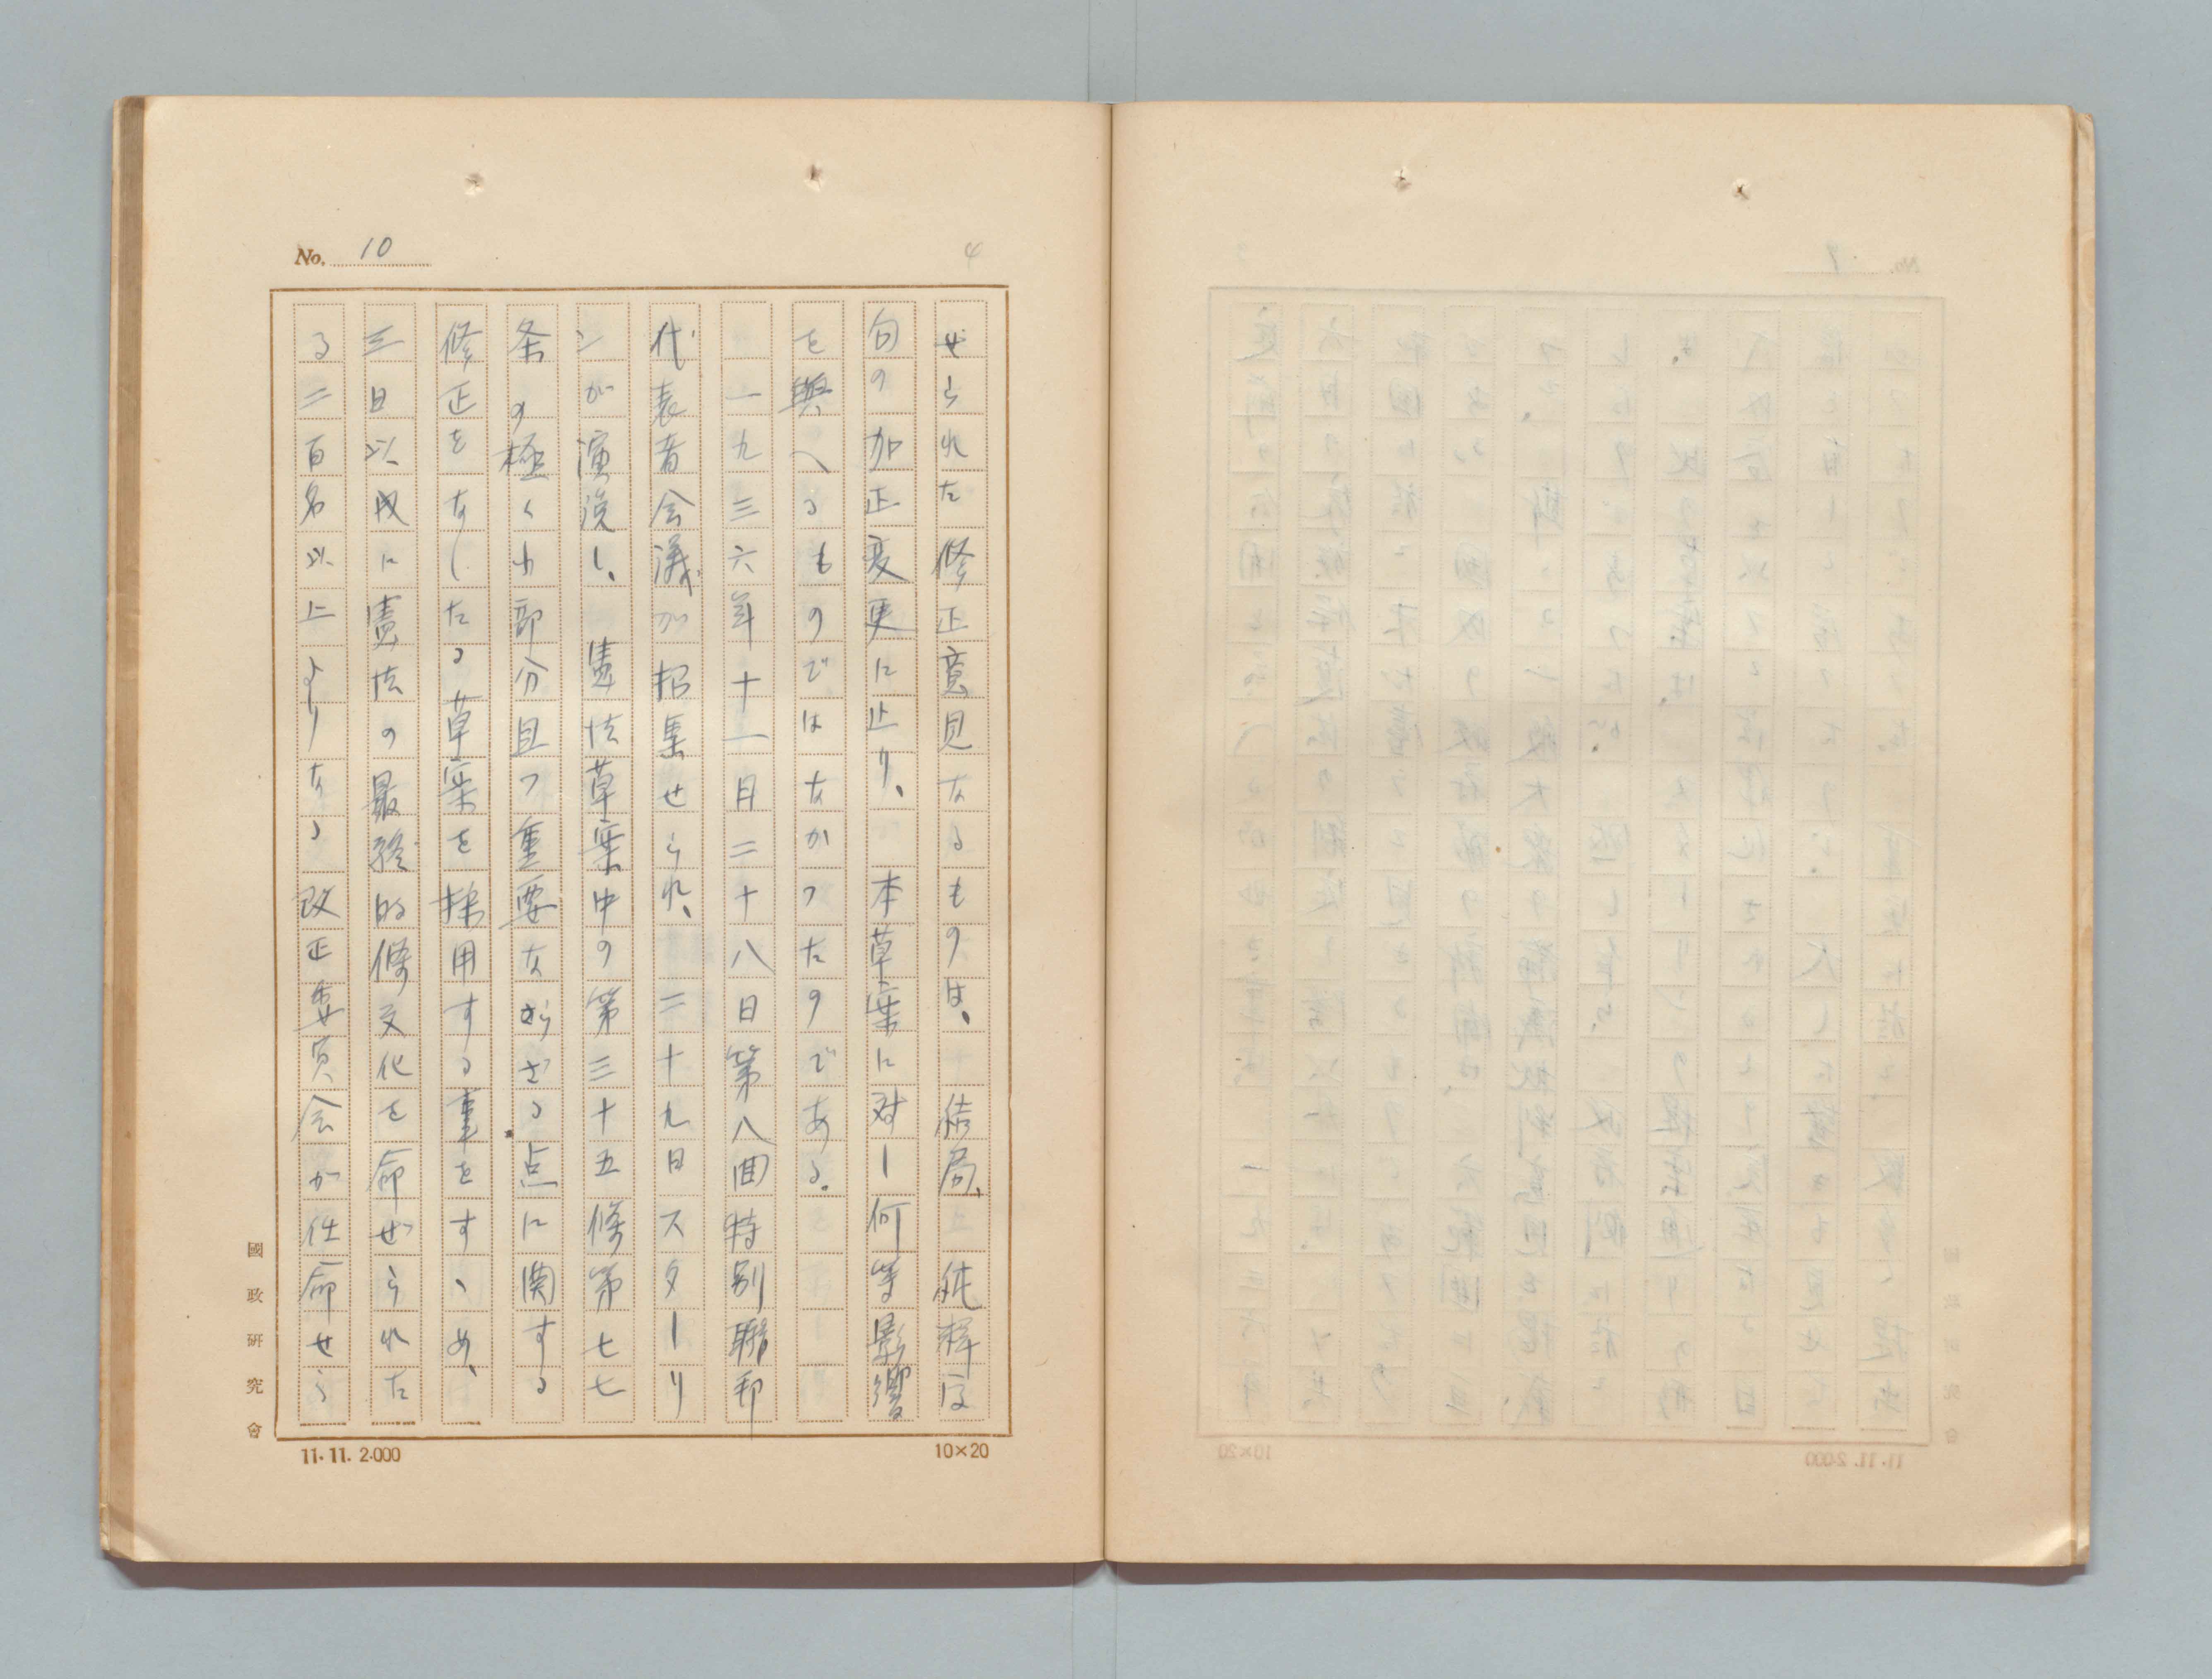 No. 10
4
せられた修正意見なるものは、結局、純粋字
句の加正変更に止り、本草案に対し何等影響
を與へるものではなかつたのである。
一九三六年十一月二十八日第八囬特別聯邦
代表者会議が招集せられ、二十九日スターリ
ンが演説し、憲法草案中の第三十五條第七七
条の極く小部分且つ重要ならざる点に関する
修正をなしたる草案を採用する事をすゝめ、
三日以成に憲法の最終的條文化を命ぜられた
る二百名以上よりなる改正委員会が任命せら
國政研究會
11.11. 2.000
10×20